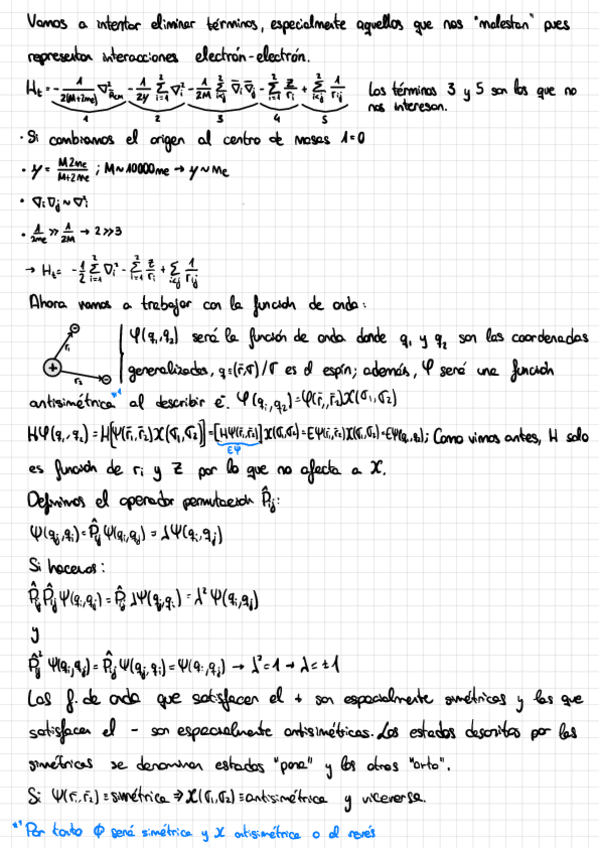 Vamos a intentar eliminar términos, especialmente aquellos que nos "molestan" pues
representan interacciones electrón-electrón.
H_t = -1/(2(M+2me)) ∇²_{R_CM} - 1/(2μ) Σ_{i=1}^{2} ∇_i² - 1/(2M) Σ_{i<j}^{2} ∇̄_i ∇̄_j - Σ_{i=1}^{2} Z/r_i + Σ_{i<j}^{2} 1/r_ij Los términos 3 y 5 son los que no
1 2 3 4 5 nos interesan.
· Si cambiamos el origen al centro de masas 1=0
· μ = M2me/(M+2me) ; M~10000me → μ~me
· ∇_i ∇_j ~ ∇²_i
· 1/2me >> 1/2M → 2>>3
→ H_t = -1/2 Σ_{i=1}^{2} ∇_i² - Σ_{i=1}^{2} Z/r_i + Σ_{i<j} 1/r_ij
Ahora vamos a trabajar con la función de onda:
r_1 r_2
Ψ(q_1,q_2) será la función de onda donde q_1 y q_2 son las coordenadas
generalizadas, q=(r̄,σ)/σ es el espín; además, Ψ será una función
antisimétrica *¹ al describir e⁻. Ψ(q_1,q_2)=Ψ(r̄_1,r̄_2)χ(σ_1,σ_2)
HΨ(q_1,q_2)=H[Ψ(r̄_1,r̄_2)χ(σ_1,σ_2)]=[HΨ(r̄_1,r̄_2)]χ(σ_1,σ_2)=EΨ(r̄_1,r̄_2)χ(σ_1,σ_2)=EΨ(q_1,q_2); Como vimos antes, H solo
EΨ
es función de r_i y Z por lo que no afecta a χ.
Definimos el operador permutación P̂_ij:
Ψ(q_j,q_i)=P̂_ij Ψ(q_i,q_j)=λΨ(q_i,q_j)
Si hacemos:
P̂_ij P̂_ij Ψ(q_i,q_j)=P̂_ij λΨ(q_j,q_i)=λ²Ψ(q_i,q_j)
y
P̂_ij² Ψ(q_i,q_j)=P̂_ij Ψ(q_j,q_i)=Ψ(q_i,q_j) → λ²=1 → λ=±1
Las f. de onda que satisfacen el + son espacialmente simétricas y las que
satisfacen el - son espacialmente antisimétricas. Los estados descritos por las
simétricas se denominan estados "para" y los otros "orto".
Si Ψ(r̄_1,r̄_2)≡simétrica ⇒ χ(σ_1,σ_2)≡antisimétrica y viceversa.
*¹ Por tanto Φ será simétrica y χ antisimétrica o al revés